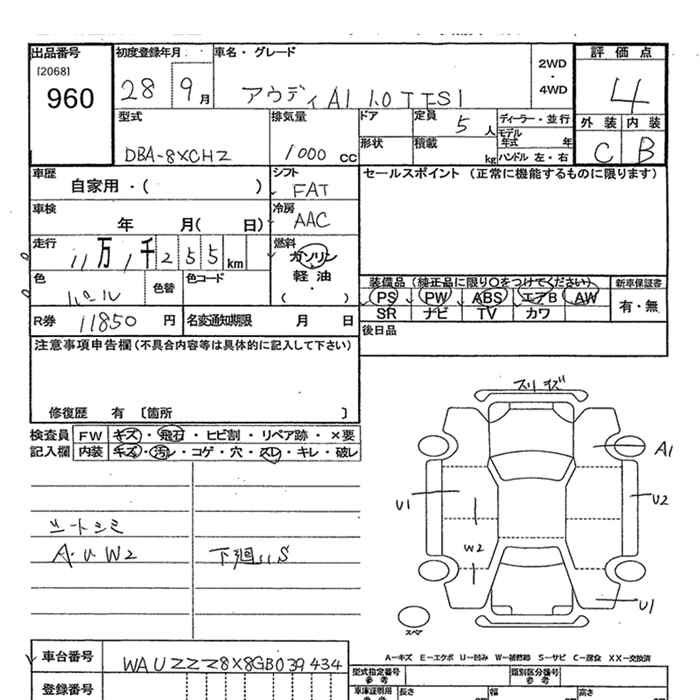 出品番号
[2068]
960
初度登録年月
28 9月
車名・グレード
アウディA1 1.0TFSI
2WD
・
4WD
評価点
4
外装 内装
C B
型式
DBA-8XCHZ
排気量
1000 cc
ドア
形状
定員
5 人
積載
kg
ディーラー・並行
モデル年式 年
ハンドル 左・右
車歴
自家用・( )
シフト
FAT
セールスポイント (正常に機能するものに限ります)
車検
年 月( 日)
冷房
AAC
走行
11万1千255km
燃料
ガソリン
軽油
・
( )
色
パール
色替
色コード
装備品 (純正品に限り○をつけてください)
新車保証書
PS PW ABS エアB AW
SR ナビ TV カワ
有・無
R券 11850 円
名変通知期限 月 日
後日品
注意事項申告欄(不具合内容等は具体的に記入して下さい)
修復歴 有 〔箇所 〕
検査員
記入欄
FW キズ・飛石・ヒビ割・リペア跡・×要
内装 キズ・汚レ・コゲ・穴・スレ・キレ・破レ
シートシミ
A・U W2
下廻りS
スリキズ
A1
U1
U2
W2
U1
スペア
A－キズ E－エクボ U－凹み W－補修跡 S－サビ C－腐食 XX－交換済
車台番号 WAUZZZ8X8GB039434
登録番号
型式指定番号
参考
類別区分番号
参考
車庫証明用
参考
長さ 幅 高さ